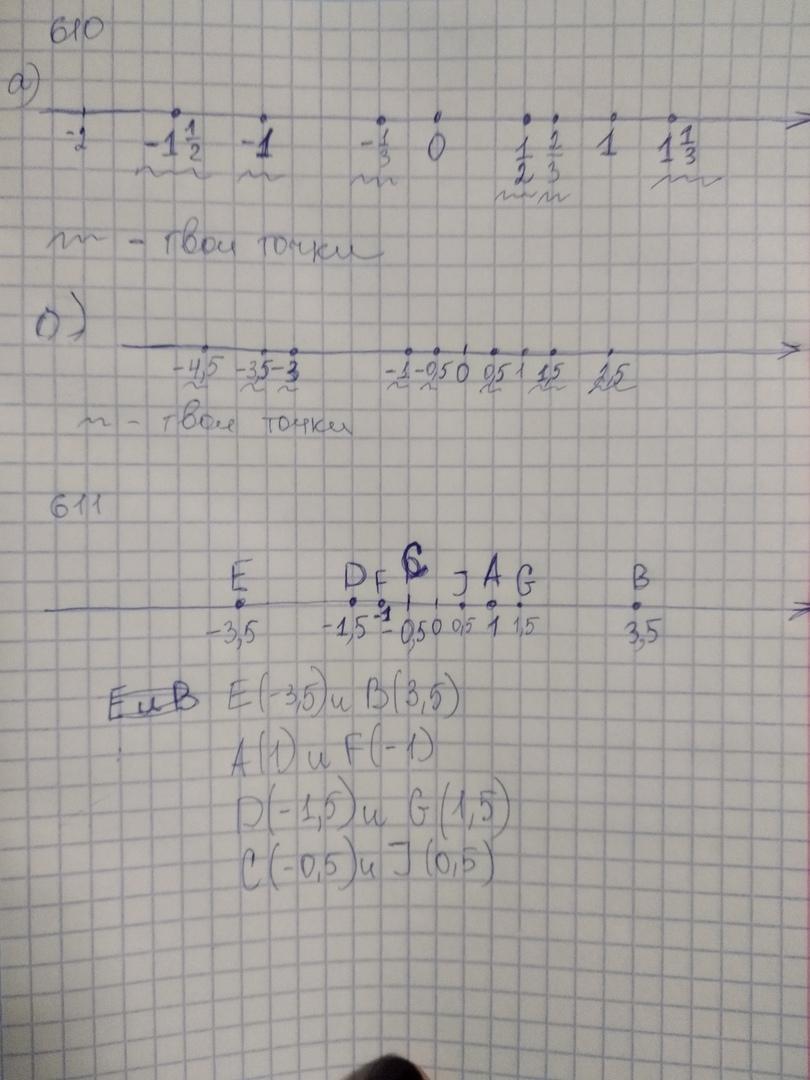 610
а)
-2 -1 1/2 -1 -1/3 0 1/2 2/3 1 1 1/3
~ - твои точки
б)
-4,5 -3,5 -3 -1 -0,5 0 0,5 1 1,5 2,5
~ - твои точки
611
E D F C J A G B
-3,5 -1,5 -1 -0,5 0 0,5 1 1,5 3,5
E и B E(-3,5) и B(3,5)
A(1) и F(-1)
D(-1,5) и G(1,5)
C(-0,5) и J(0,5)